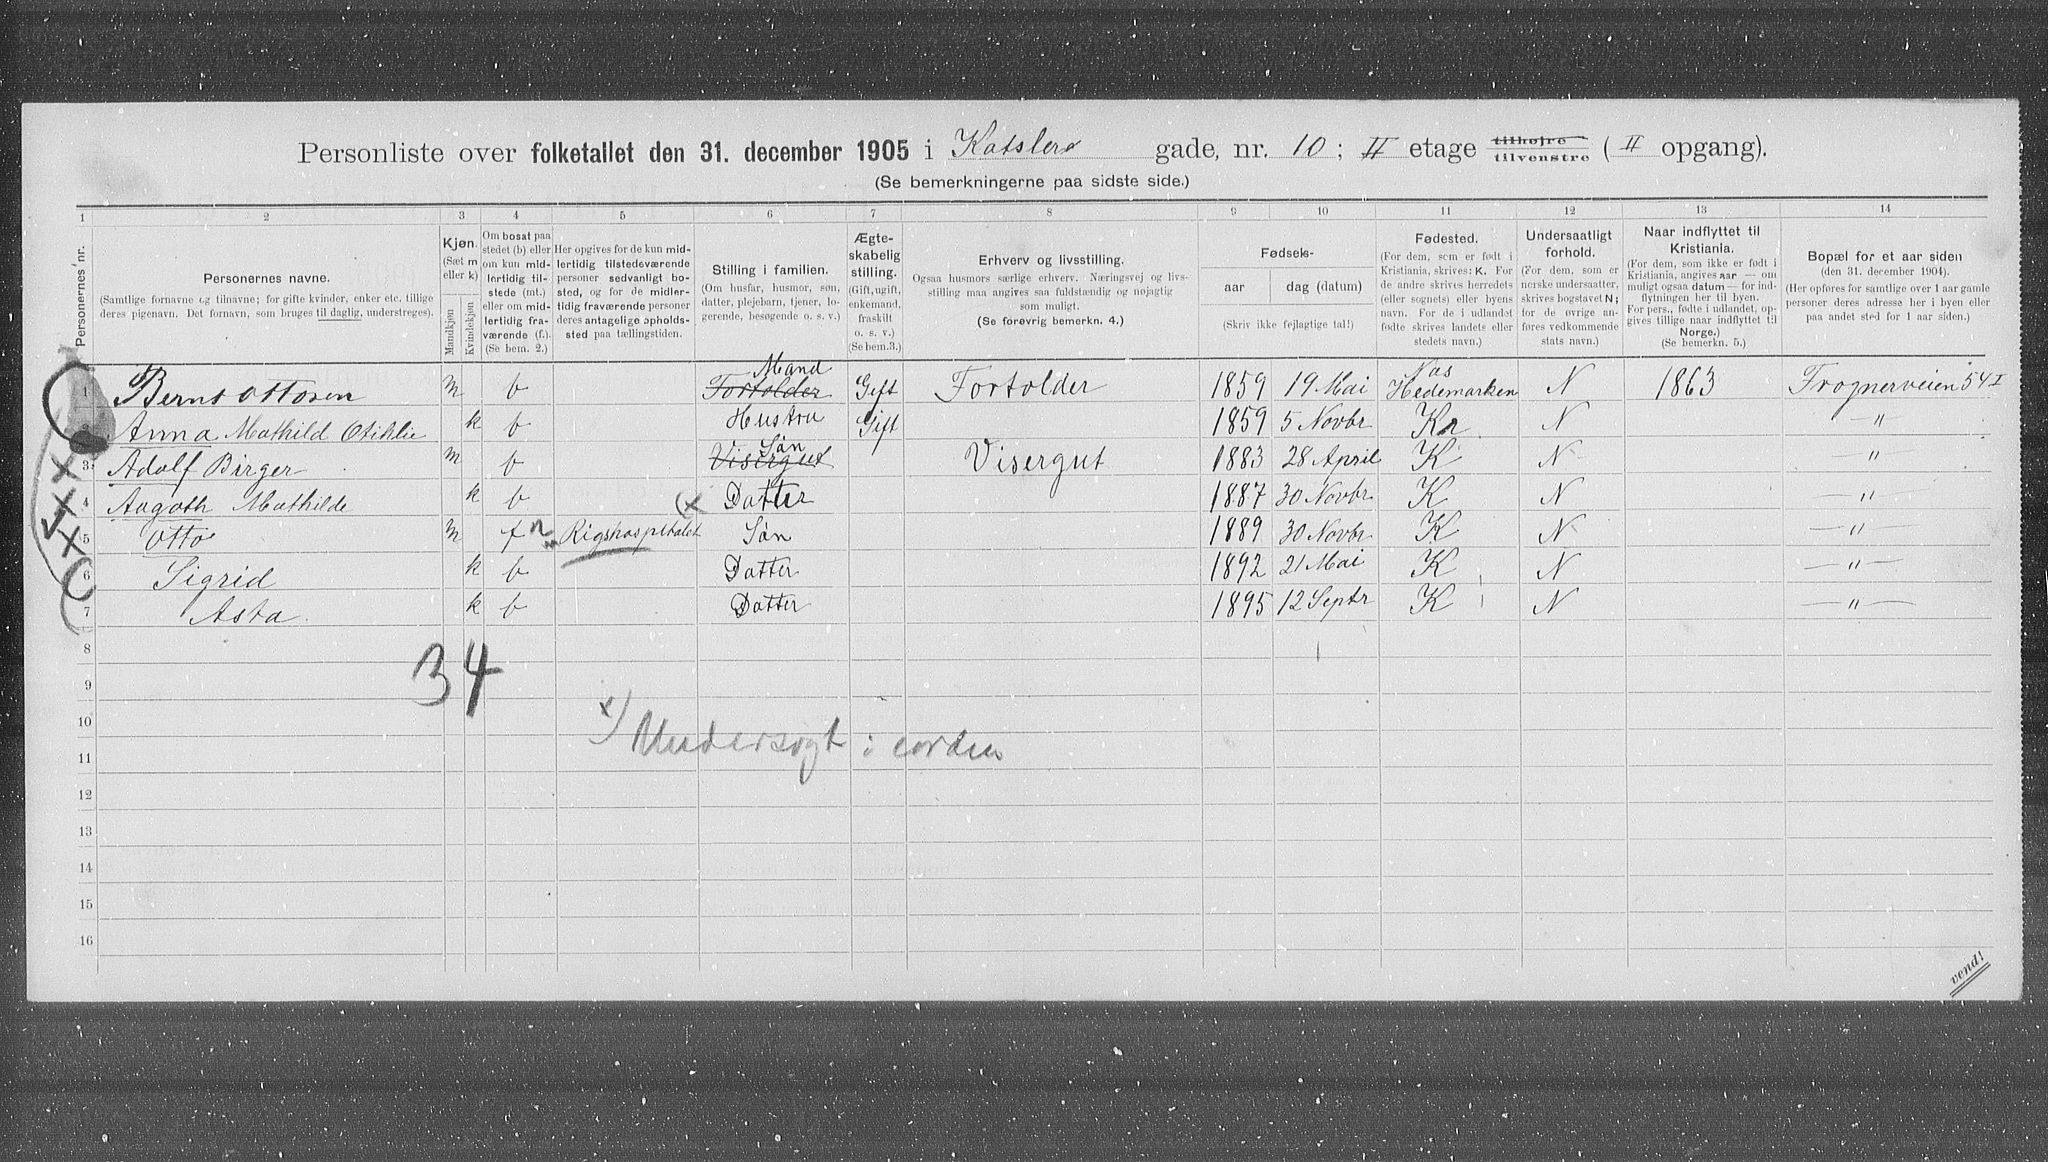 Personliste over folketallet den 31. december 1905 i Katslers gade, nr. 10; II etage tilhøjre tilvenstre (II opgang).
(Se bemerkningerne paa sidste side.)
1 2 3 4 5 6 7 8 9 10 11 12 13 14
Personernes nr.
Personernes navne.
(Samtlige fornavne og tilnavne; for gifte kvinder, enker etc. tillige deres pigenavn. Det fornavn, som bruges til daglig, understreges).
Kjøn.
(Sæt m eller k)
Mandkjøn
Kvindekjøn
Om bosat paa stedet (b) eller om kun midlertidig tilstede (mt.) eller om midlertidig fraværende (f.).
(Se bem. 2.)
Her opgives for de kun midlertidig tilstedeværende personer sedvanligt bosted, og for de midlertidig fraværende personer deres antagelige opholdssted paa tællingstiden.
Stilling i familien.
(Om husfar, husmor, søn, datter, plejebarn, tjener, logerende, besøgende o. s. v.)
Ægteskabelig stilling.
(Gift, ugift, enkemand, fraskilt o. s. v.)
(Se bem. 3.)
Erhverv og livsstilling.
Ogsaa husmors særlige erhverv. Næringsvej og livsstilling maa angives saa fuldstændig og nøjagtig som muligt.
(Se forøvrig bemerkn. 4.)
Fødsels-
aar dag (datum)
(Skriv ikke fejlagtige tal!)
Fødested.
(For dem, som er født i Kristiania, skrives: K. For de andre skrives herredets (eller sognets) eller byens navn. For de i udlandet fødte skrives landets eller stedets navn.)
Undersaatligt forhold.
(For dem, som er norske undersaatter, skrives bogstavet N; for de øvrige anføres vedkommende stats navn.)
Naar indflyttet til Kristiania.
(For dem, som ikke er født i Kristiania, angives aar — om muligt ogsaa datum — for indflytningen her til byen. For pers., fødte i udlandet, opgives tillige naar indflyttet til Norge.)
(Se bemerkn. 5.)
Bopæl for et aar siden
(den 31. december 1904).
(Her opføres for samtlige over 1 aar gamle personer deres adresse her i byen eller paa andet sted for 1 aar siden.)
1 Bernt Ottosen m b Fortolder Mand Gift Fortolder 1859 19 Mai Nas Hedemarken N 1863 Frognerveien 54 I
2 Anna Mathild Otihlie k b Hustru Gift 1859 5 Novbr Kr N — " —
3 Adolf Birger m b Visergut Søn Visergut 1883 28 April K N — " —
4 Aagoth Mathilde k b (x Datter 1887 30 Novbr K N — " —
5 Otto m f Rigshospitalet Søn 1889 30 Novbr K N — " —
6 Sigrid k b Datter 1892 21 Mai K N — " —
7 Asta k b Datter 1895 12 Septr K N — " —
8
34
9
10
x) Undersøgt i orden
11
12
13
14
15
16
vend!